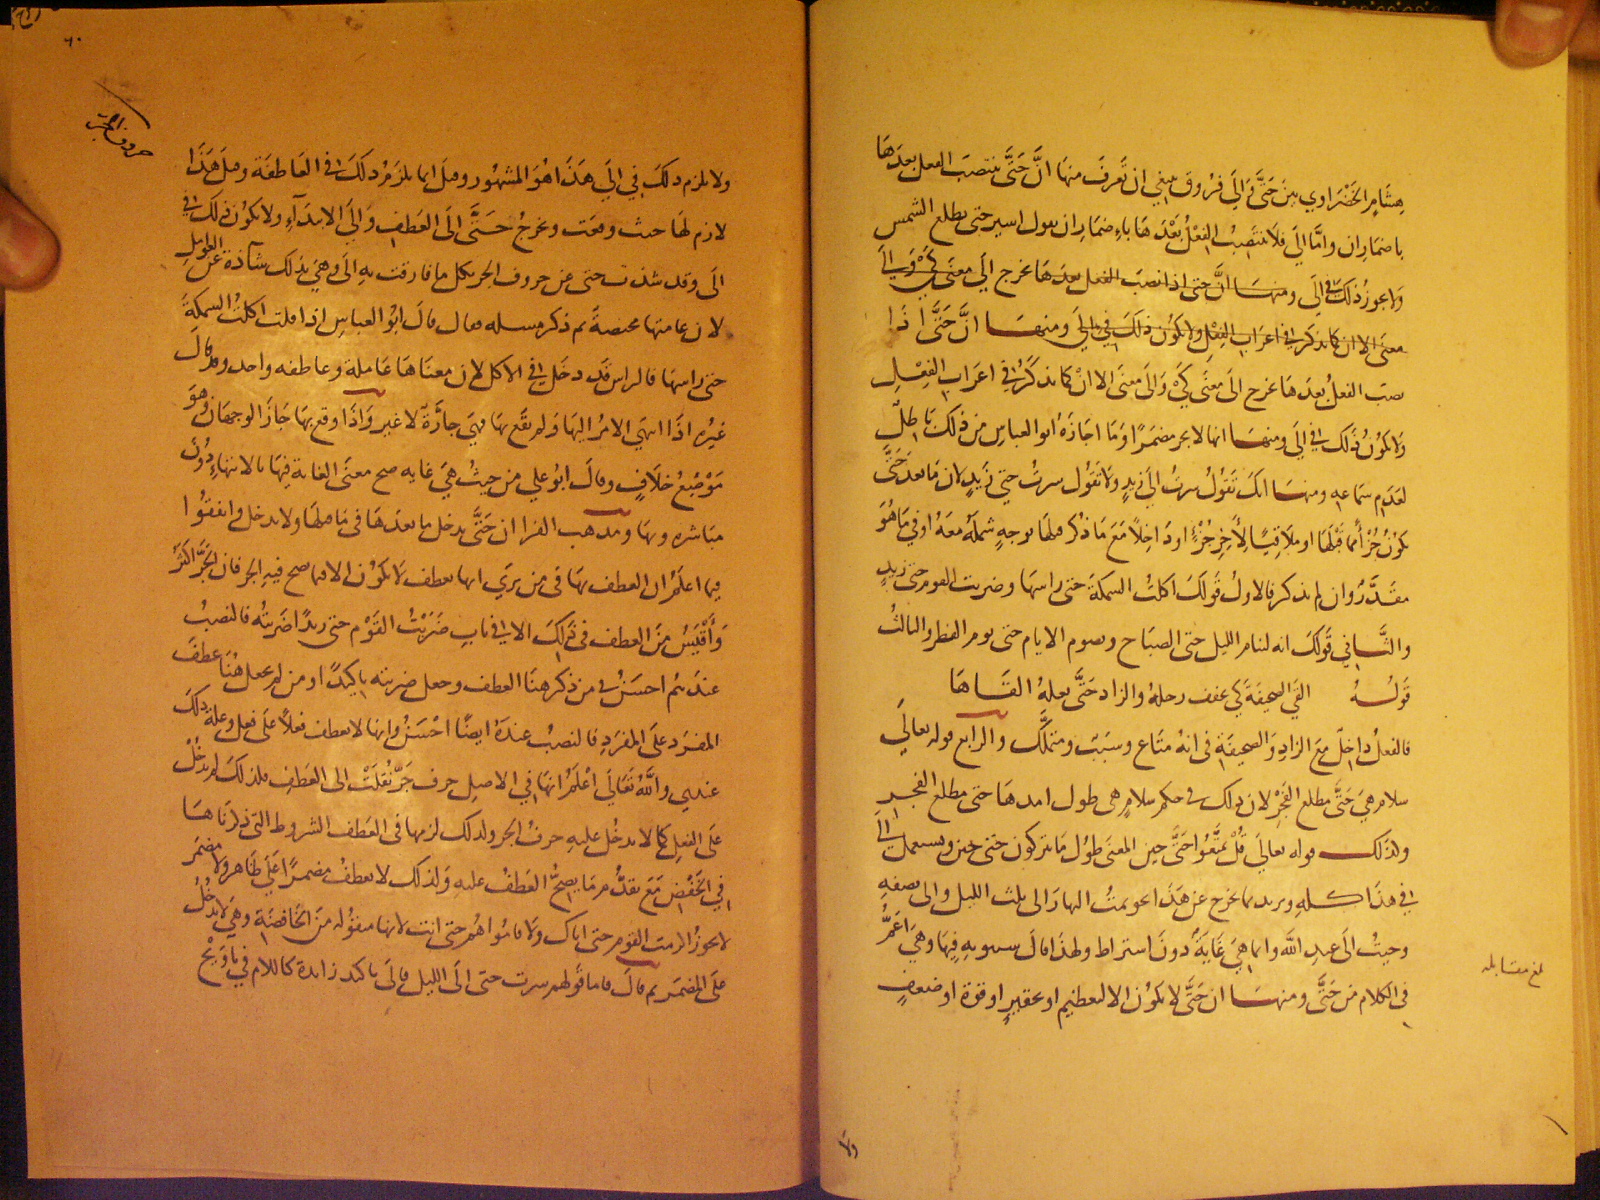 هشام الخضراوي بين حتى والى فروق ينبغي ان تعرف منها ان حتى ينتصب الفعل بعدها
باضمار ان واما الى فلا ينتصب الفعل بعدها باضمار ان يقول اسير حتى يطلع الشمس
ولا يجوز ذلك في الى ومنها ان حتى اذا نصب الفعل بعدها تخرج الى معنى كي والى
معنى الا ان كما نذكر في اعراب الفعل ولا يكون ذلك في الى ومنها ان حتى اذا
نصب الفعل بعدها تخرج الى معنى كي والى معنى الا ان كما نذكر في اعراب الفعل
ولا يكون ذلك في الى ومنها انها لا يجر مضمرا وما اجازه ابو العباس من ذلك باطل
لعدم سماعه ومنها انك تقول سرت الى زيد ولا تقول سرت حتى زيد لان ما بعد حتى
يكون جزأ مما قبلها او ملاقيا لآخر جزء او داخلا مع ما ذكر قبلها بوجه شمله معه او في ما هو
مقدر وان لم يذكر فالاول قولك اكلت السمكة حتى راسها وضربت القوم حتى زيد
والثاني قولك انه لينام الليل حتى الصباح ويصوم الايام حتى يوم الفطر والثالث
قوله القى الصحيفة كي يخفف رحله والزاد حتى نعله القاها
فالفعل داخل مع الزاد والصحيفة في انه متاع وسبب ومتملك والرابع قوله تعالى
سلام هي حتى مطلع الفجر لان ذلك في حكم سلام هي طول امدها حتى مطلع الفجر
وكذلك قوله تعالى قل تمتعوا حتى حين المعنى طول ما تتركون حتى حين ويستعمل الى
في هذا كله ويزيد بما يخرج عن هذا نحو نمت النهار الى ثلث الليل والى نصفه
وجيت الى عبد الله وانما هي غاية دون اشتراط ولهذا قال سيبويه فيها وهي اعم
في الكلام من حتى ومنها ان حتى لا يكون الا لتعظيم او تحقير او قوة او ضعف
بلغ مقابله
ولا
٦٠
حروف الجر
ولا يلزم ذلك في الى هذا هو المشهور وقيل انما يلزم ذلك في العاطفة وقيل هذا
لازم لها حيث وقعت وتخرج حتى الى العطف والى الابتداء ولا يكون ذلك في
الى وقد شذت حتى عن حروف الجر بكل ما فارقت به الى وهي بذلك شاذة عن العوامل
لان عامتها مختصة ثم ذكر مسله فقال قال ابو العباس اذا قلت اكلت السمكة
حتى راسها فالراس قد دخل في الاكل لان معناها عاملة وعاطفه واحد وقال
غيره اذا انتهى الامر اليها ولم يقع بها فهي جارة لا غير واذا وقع بها جاز الوجهان وهو
موضع خلاف وقال ابو علي من حيث هي غايه صح معنى الغاية فيها بالانتهاء دون
مباشره وبها ومذهب الفرا ان حتى يدخل ما بعدها في ما قبلها ولا يدخل واتفقوا
فيما اعلم ان العطف بها في من يرى انها تعطف لا يكون الا فيما صح فيه الجر فان الجر اكثر
واقيس من العطف في ذلك الا في باب ضربت القوم حتى زيدا ضربته فالنصب
عندهم احسن في من ذكر هنا العطف وجعل ضربته تاكيدا ومن لم يجعل هنا عطف
المفرد على المفرد فالنصب عنده ايضا احسن وانها لا تعطف فعلا على فعل وعلة ذلك
عندي والله تعالى اعلم انها في الاصل حرف جر نقلت الى العطف فلذلك لم تدخل
على الفعل كما لا يدخل عليه حرف الجر ولذلك لزمها في العطف الشروط التي ذكرناها
في الخفض مع تقدم ما يصح العطف عليه ولذلك لا تعطف مضمرا على ظاهر ولا مضمر
لا يجوز اكرمت القوم حتى اياك ولا قاموا هم حتى انت لانها منقوله من الخافضة وهي لا تدخل
على المضمر ثم قال فاما قولهم سرت حتى الى الليل فالى تاكيد زايدة كاللام في يا ويح